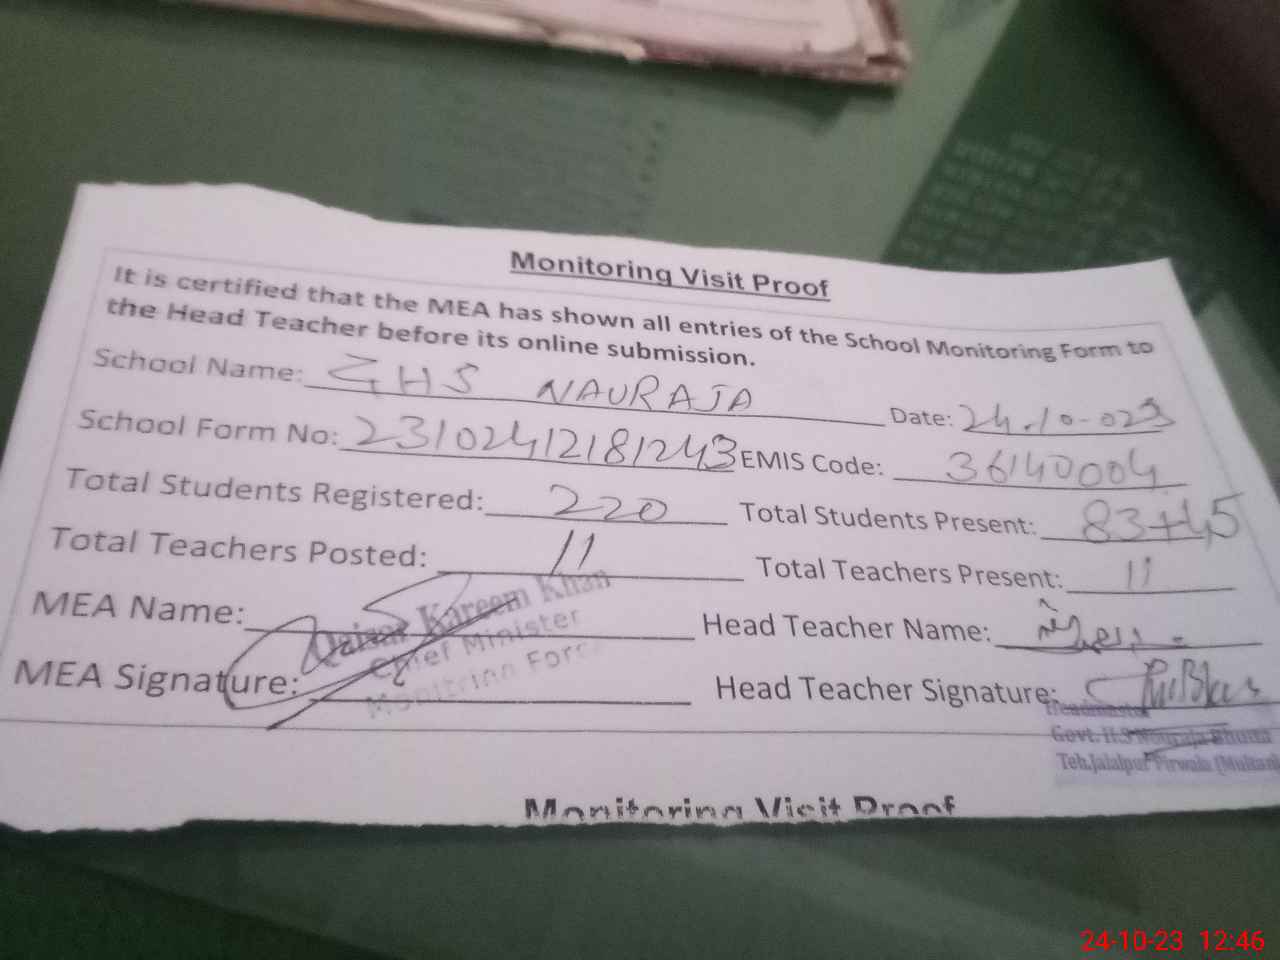 Monitoring Visit Proof
It is certified that the MEA has shown all entries of the School Monitoring Form to
the Head Teacher before its online submission.
School Name: GHS NAURAJA Date: 24-10-023
School Form No: 23102412181243 EMIS Code: 36140004
Total Students Registered: 220 Total Students Present: 83+45
Total Teachers Posted: 11 Total Teachers Present: 11
MEA Name: Qaisar Kareem Khan Head Teacher Name:
Chief Minister
MEA Signature: Monitring Force Head Teacher Signature:
Headmaster
Govt. H.S Nouraja Bhutta
Teh.Jalalpur Pirwala (Multan)
Monitoring Visit Proof
24-10-23 12:46